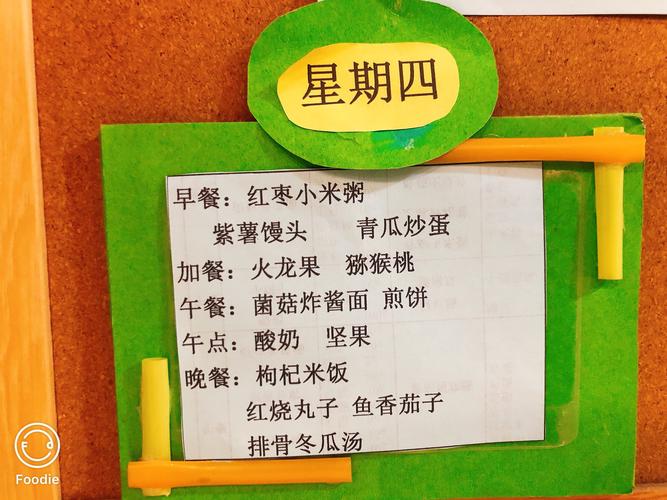 星期四
早餐：红枣小米粥
紫薯馒头 青瓜炒蛋
加餐：火龙果 猕猴桃
午餐：菌菇炸酱面 煎饼
午点：酸奶 坚果
晚餐：枸杞米饭
红烧丸子 鱼香茄子
排骨冬瓜汤
Foodie